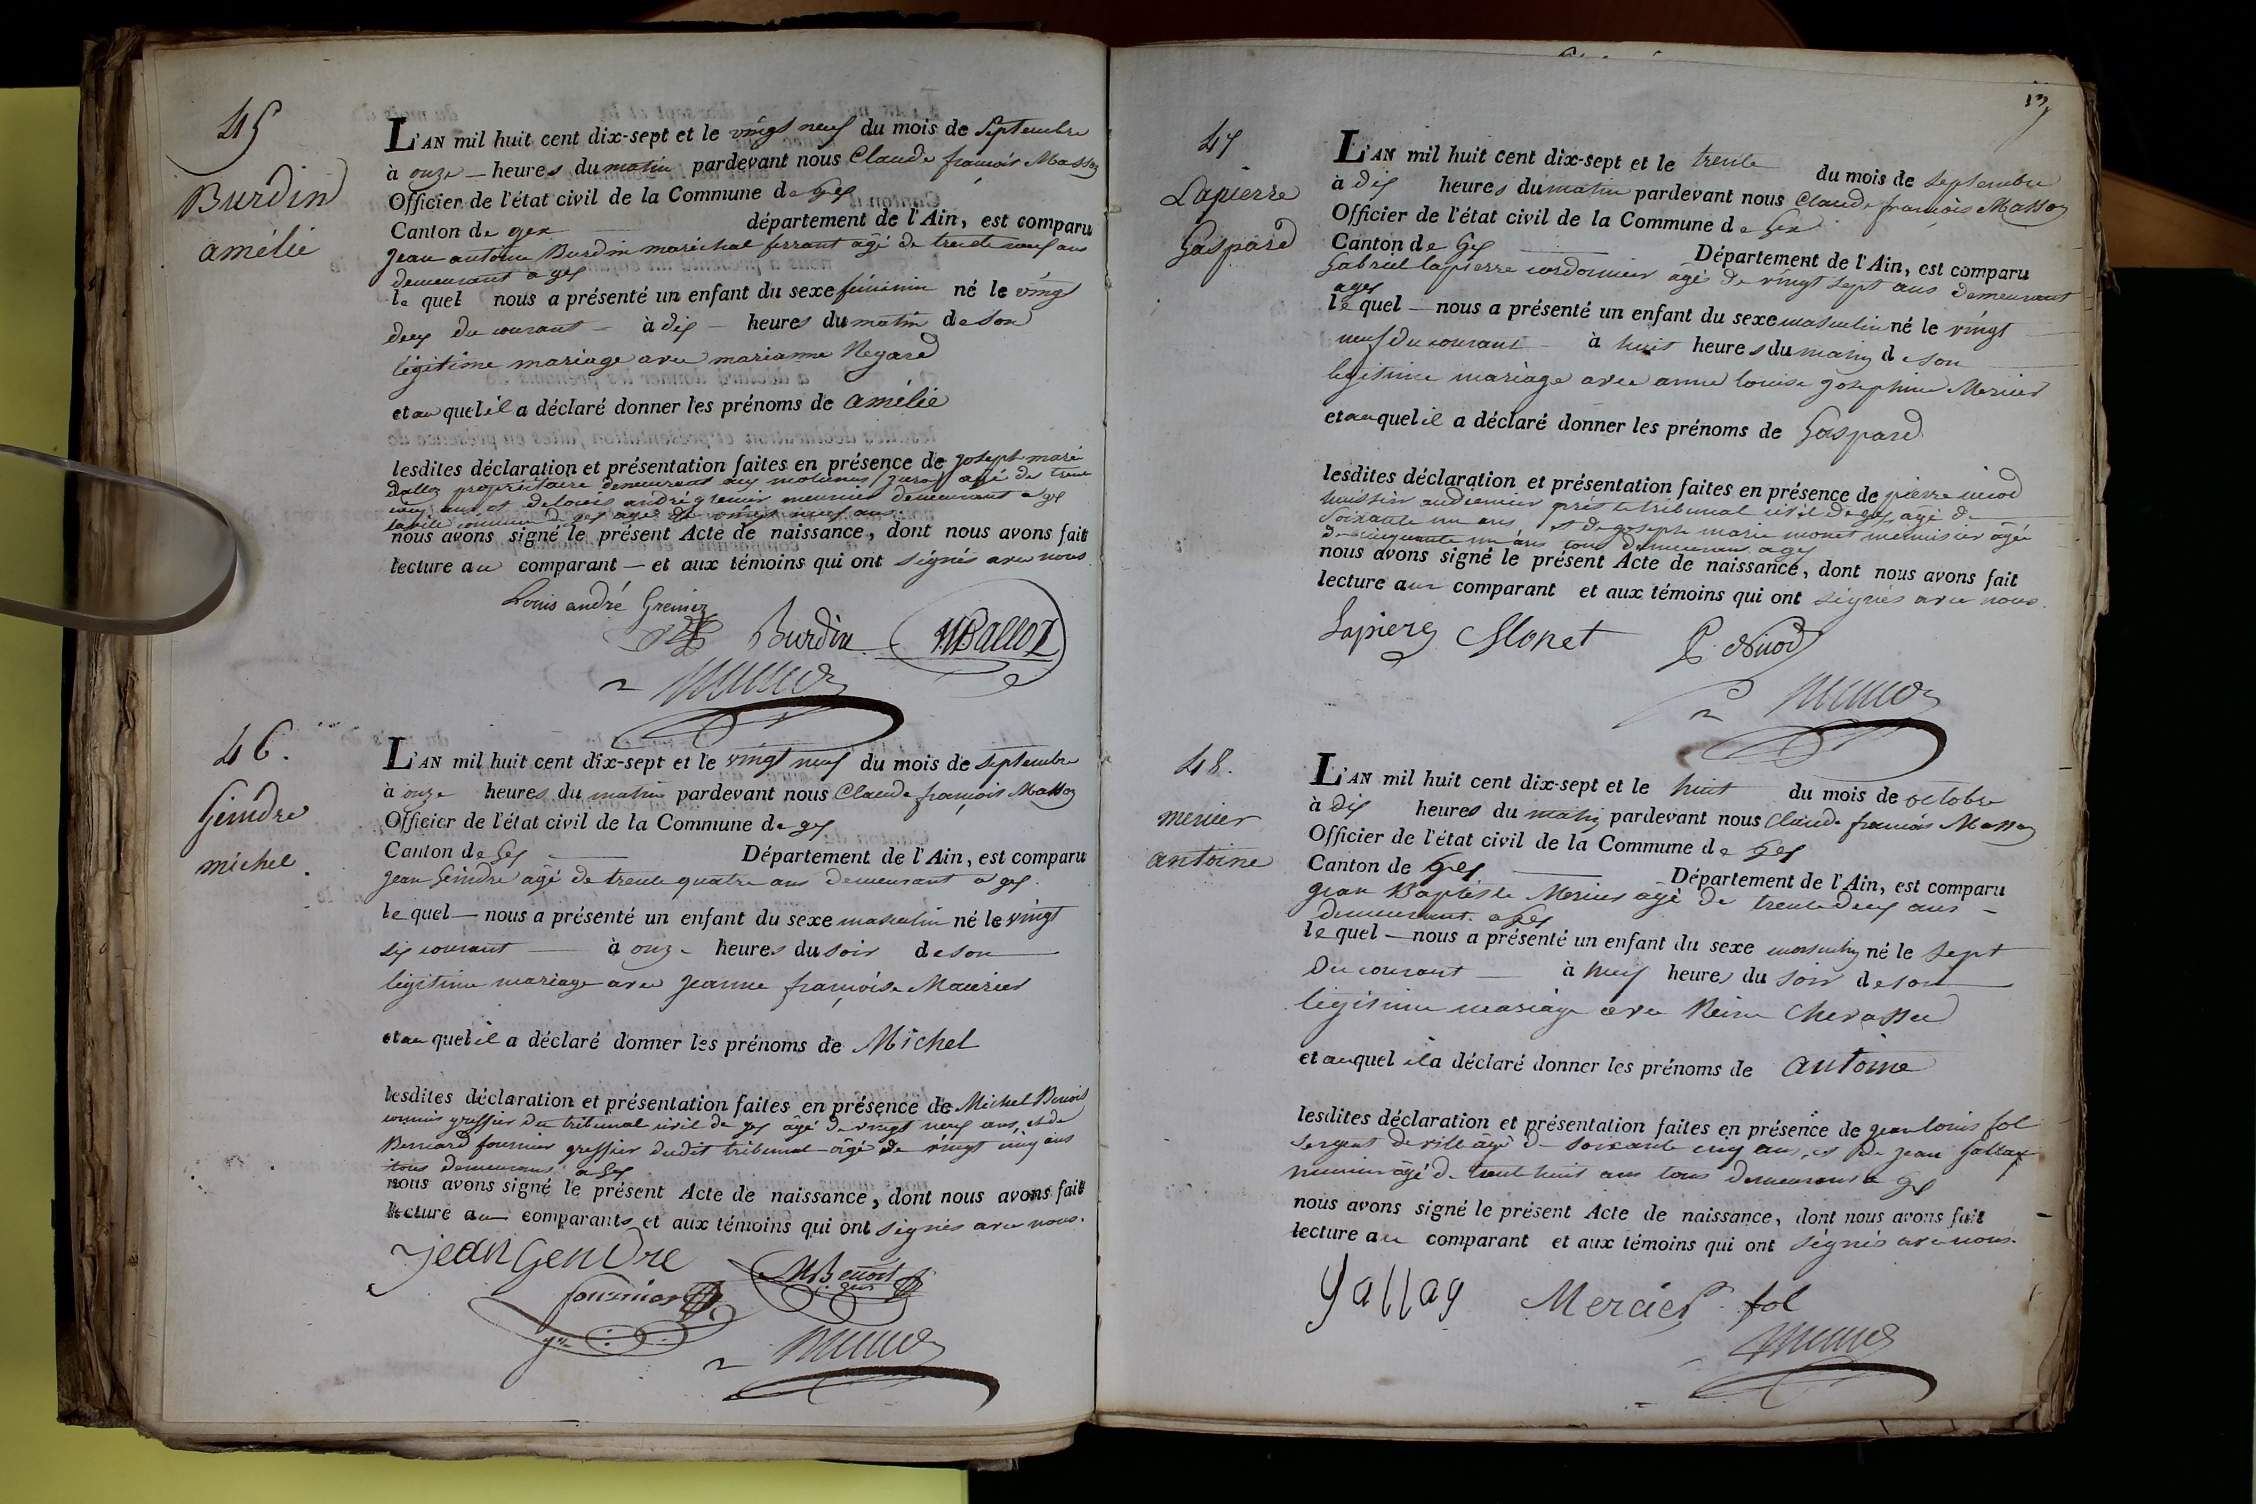 45
Burdin
amélie
L'AN mil huit cent dix-sept et le vingt neuf du mois de Septembre
à onze heures du matin pardevant nous Claude françois Masson
Officier de l'état civil de la Commune de Gex
Canton de gex département de l'Ain, est comparu
Jean antoine Burdin maréchal ferrant âgé de trente neuf ans
demeurant a gex
le quel nous a présenté un enfant du sexe féminin né le vingt
deux du courant à dix heures du matin de son
légitime mariage avec marianne Regard
et au quel il a déclaré donner les prénoms de amélie
lesdites déclaration et présentation faites en présence de joseph marie
Dalloz propriétaire demeurant aux molunes (jura) agé de trente
ans et de louis andré grenier meunier demeurant a gex
commune de gex agé de vingt neuf ans
nous avons signé le présent Acte de naissance, dont nous avons fait
lecture au comparant et aux témoins qui ont signés avec nous
Louis andré Grenier
Burdin Dalloz
46.
Geindre
michel.
L'AN mil huit cent dix-sept et le vingt neuf du mois de Septembre
à onze heures du matin pardevant nous Claude françois Masson
Officier de l'état civil de la Commune de gex
Canton de Gex Département de l'Ain, est comparu
jean Geindre agé de trente quatre ans demeurant a gex.
le quel nous a présenté un enfant du sexe masculin né le vingt
six courant à onze heures du soir de son
légitime mariage avec jeanne françoise Maurier
et au quel il a déclaré donner les prénoms de Michel
lesdites déclaration et présentation faites en présence de Michel Benoit
commis greffier du tribunal civil de gex âgé de vingt neuf ans, et de
Bernard fournier greffier dudit tribunal âgé de vingt cinq ans
tous demeurans a Gex
nous avons signé le présent Acte de naissance, dont nous avons fait
lecture au comparants et aux témoins qui ont signés avec nous.
jean Gendre
M Benoit
fournier
47
Lapierre
Gaspard
L'AN mil huit cent dix-sept et le trente du mois de septembre
à dix heures du matin pardevant nous Claude françois Masson
Officier de l'état civil de la Commune de Gex
Canton de Gex Département de l'Ain, est comparu
Gabriel lapierre cordonnier agé de vingt sept ans demeurant
a gex
le quel nous a présenté un enfant du sexe masculin né le vingt
neuf du courant à huit heures du matin de son
légitime mariage avec anne louise josephine Mercier
et au quel il a déclaré donner les prénoms de Gaspard
lesdites déclaration et présentation faites en présence de pierre nicod
huissier audiencier près le tribunal civil de gex, âgé de
soixante un ans, et de joseph marie monet menuisier âgé
de cinquante un ans tous demeurans a gex
nous avons signé le présent Acte de naissance, dont nous avons fait
lecture au comparant et aux témoins qui ont signés avec nous.
Lapiere Monet P. Nicod
48.
mercier
antoine
L'AN mil huit cent dix-sept et le huit du mois de octobre
à dix heures du matin pardevant nous Claude françois Masson
Officier de l'état civil de la Commune de Gex
Canton de Gex Département de l'Ain, est comparu
jean Baptiste Mercier âgé de trente deux ans
demeurant a Gex
le quel nous a présenté un enfant du sexe masculin né le sept
du courant à neuf heures du soir de son
légitime mariage avec Reine Chevassu
et au quel il a déclaré donner les prénoms de antoine
lesdites déclaration et présentation faites en présence de jean louis fol
sergent de ville âgé de soixante cinq ans, et de jean Gallay
meunier âgé de trente huit ans tous demeurans a gex
nous avons signé le présent Acte de naissance, dont nous avons fait
lecture au comparant et aux témoins qui ont signés avec nous.
Gallay Mercier fol